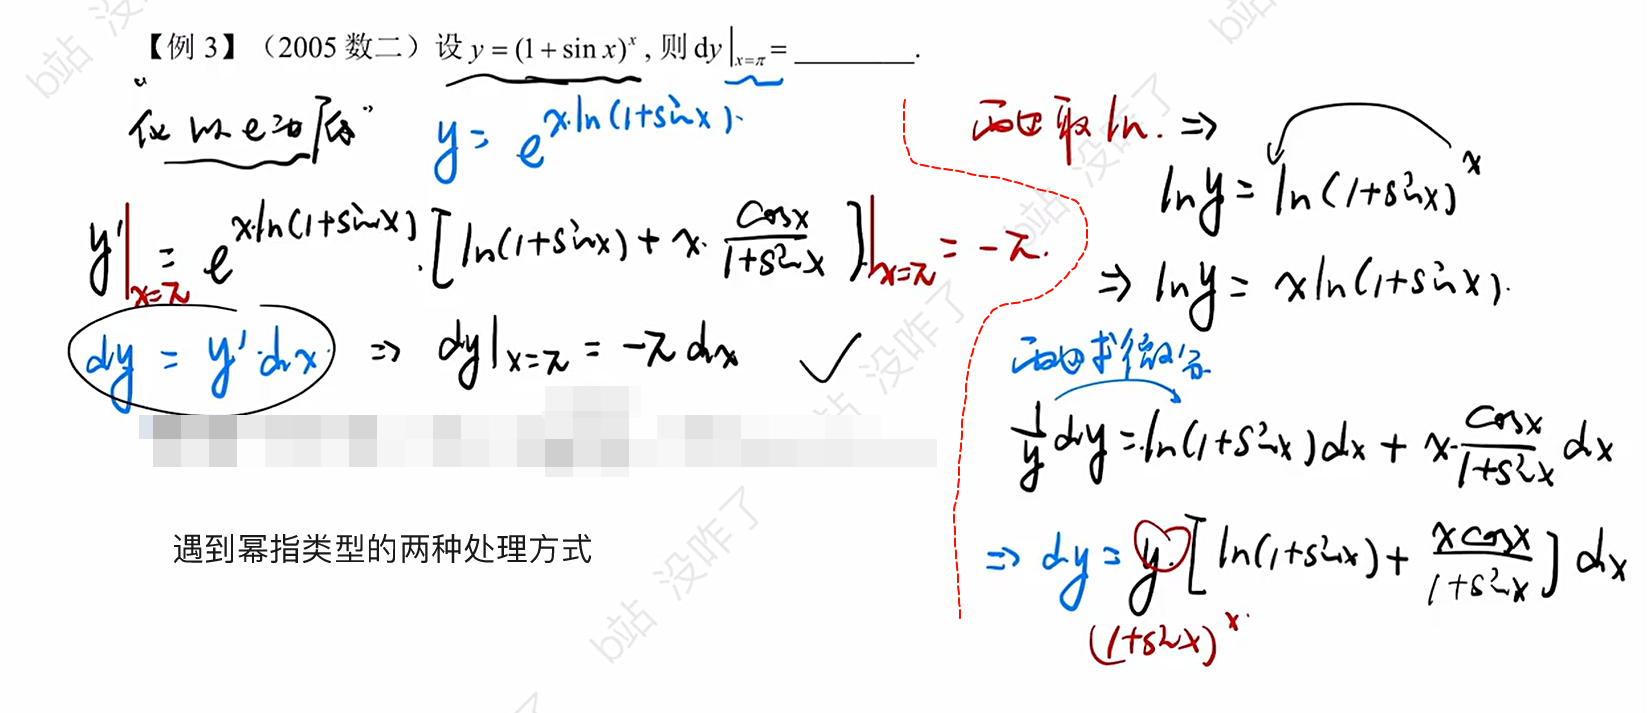 【例 3】（2005 数二）设 y = (1 + sin x)^x , 则 dy|_{x=π} = ________.
“化以e为底” y = e^{x·ln(1+sinx)}.
y'|_{x=π} = e^{x·ln(1+sinx)}·[ln(1+sinx) + x·\frac{cosx}{1+sinx}]|_{x=π} = -π.
dy = y'·dx ⇒ dy|_{x=π} = -π dx ✓
遇到幂指类型的两种处理方式
两边取 ln. ⇒
ln y = ln(1+sinx)^x
⇒ ln y = x ln(1+sinx).
两边求微分
\frac{1}{y} dy = ln(1+sinx)dx + x·\frac{cosx}{1+sinx} dx
⇒ dy = y·[ln(1+sinx) + \frac{x cosx}{1+sinx}] dx
(1+sinx)^x.
b站 没咋了
b站 没咋了
b站 没咋了
b站 没咋了